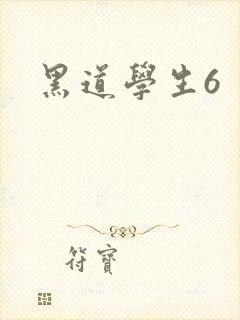 黑道學生6
符寶